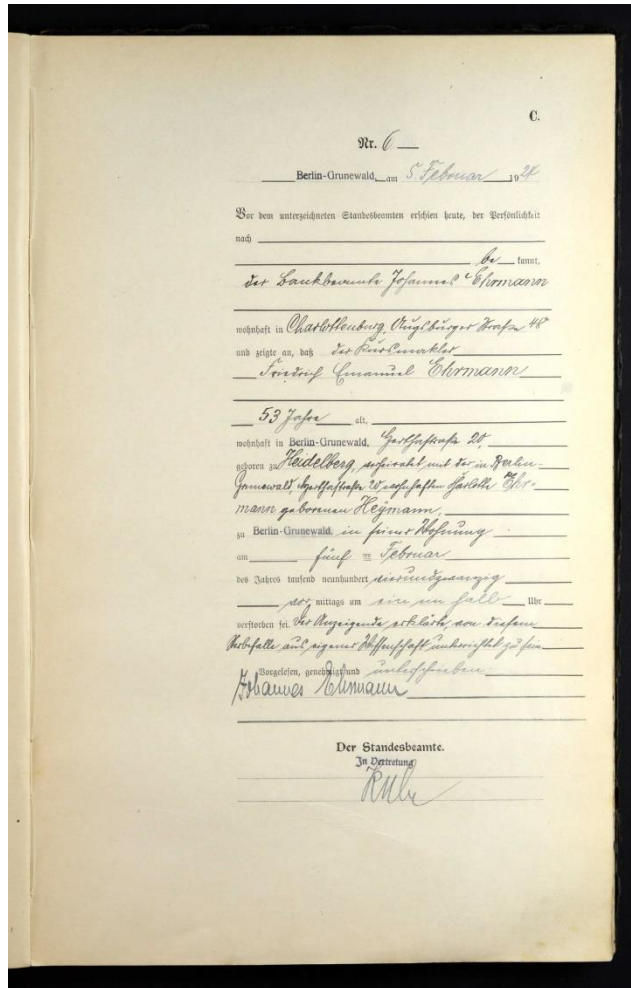 C.
Nr. 6
Berlin-Grunewald, am 5. Februar 1924
Vor dem unterzeichneten Standesbeamten erschien heute, der Persönlichkeit
nach
be kannt,
der Bankbeamte Johannes Ehrmann
wohnhaft in Charlottenburg, Augsburger Straße 48
und zeigte an, daß der Kursmakler
Friedrich Emanuel Ehrmann
53 Jahre alt,
wohnhaft in Berlin-Grunewald, Herthastraße 20,
geboren zu Heidelberg, verheiratet mit der in Berlin-
Grunewald, Herthastraße 20, wohnhaften Charlotte Ehr-
mann geborenen Heymann,
zu Berlin-Grunewald, in seiner Wohnung
am fünf = Februar
des Jahres tausend neunhundert vierundzwanzig
vor mittags um ein ein halb Uhr
verstorben sei. Der Anzeigende erklärte, von diesem
Sterbefalle aus eigener Wissenschaft unterrichtet zu sein
Vorgelesen, genehmigt und unterschrieben.
Johannes Ehrmann
Der Standesbeamte.
In Vertretung